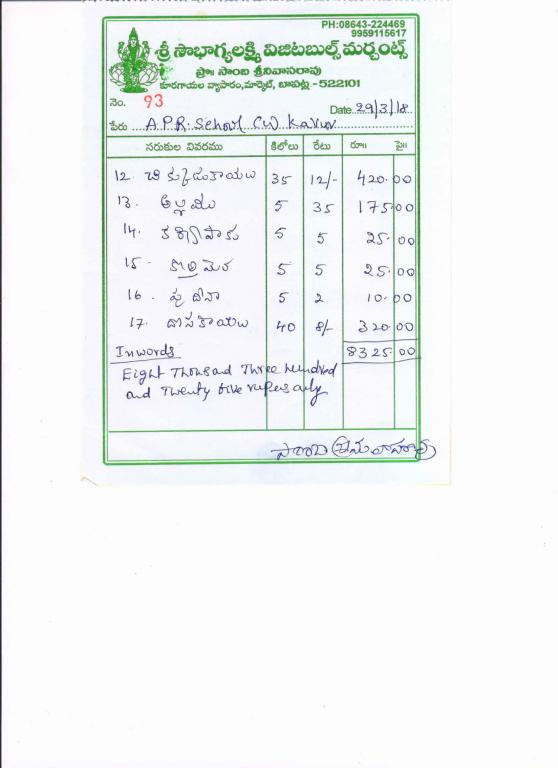 PH:08643-224469
9959115617
శ్రీ సౌభాగ్యలక్ష్మి విజిటబుల్స్ మర్చంట్స్
ప్రొః సాంబి శ్రీనివాసరావు
కూరగాయల వ్యాపారం,మార్కెట్, బాపట్ల - 522101
నెం. 93
Date 29/3/18
పేరు A.P.R. School (W) Kavur
సరుకుల వివరము కిలోలు రేటు రూ॥ పై॥
12. చిక్కుడుకాయలు 35 12/- 420.00
13. అల్లము 5 35 175.00
14. కర్వేపాకు 5 5 25.00
15 - కొత్తిమెర 5 5 25.00
16 . పుదీనా 5 2 10.00
17. దోసకాయలు 40 8/- 320.00
Inwords 8325.00
Eight Thousand Three hundred
and Twenty five rupees only